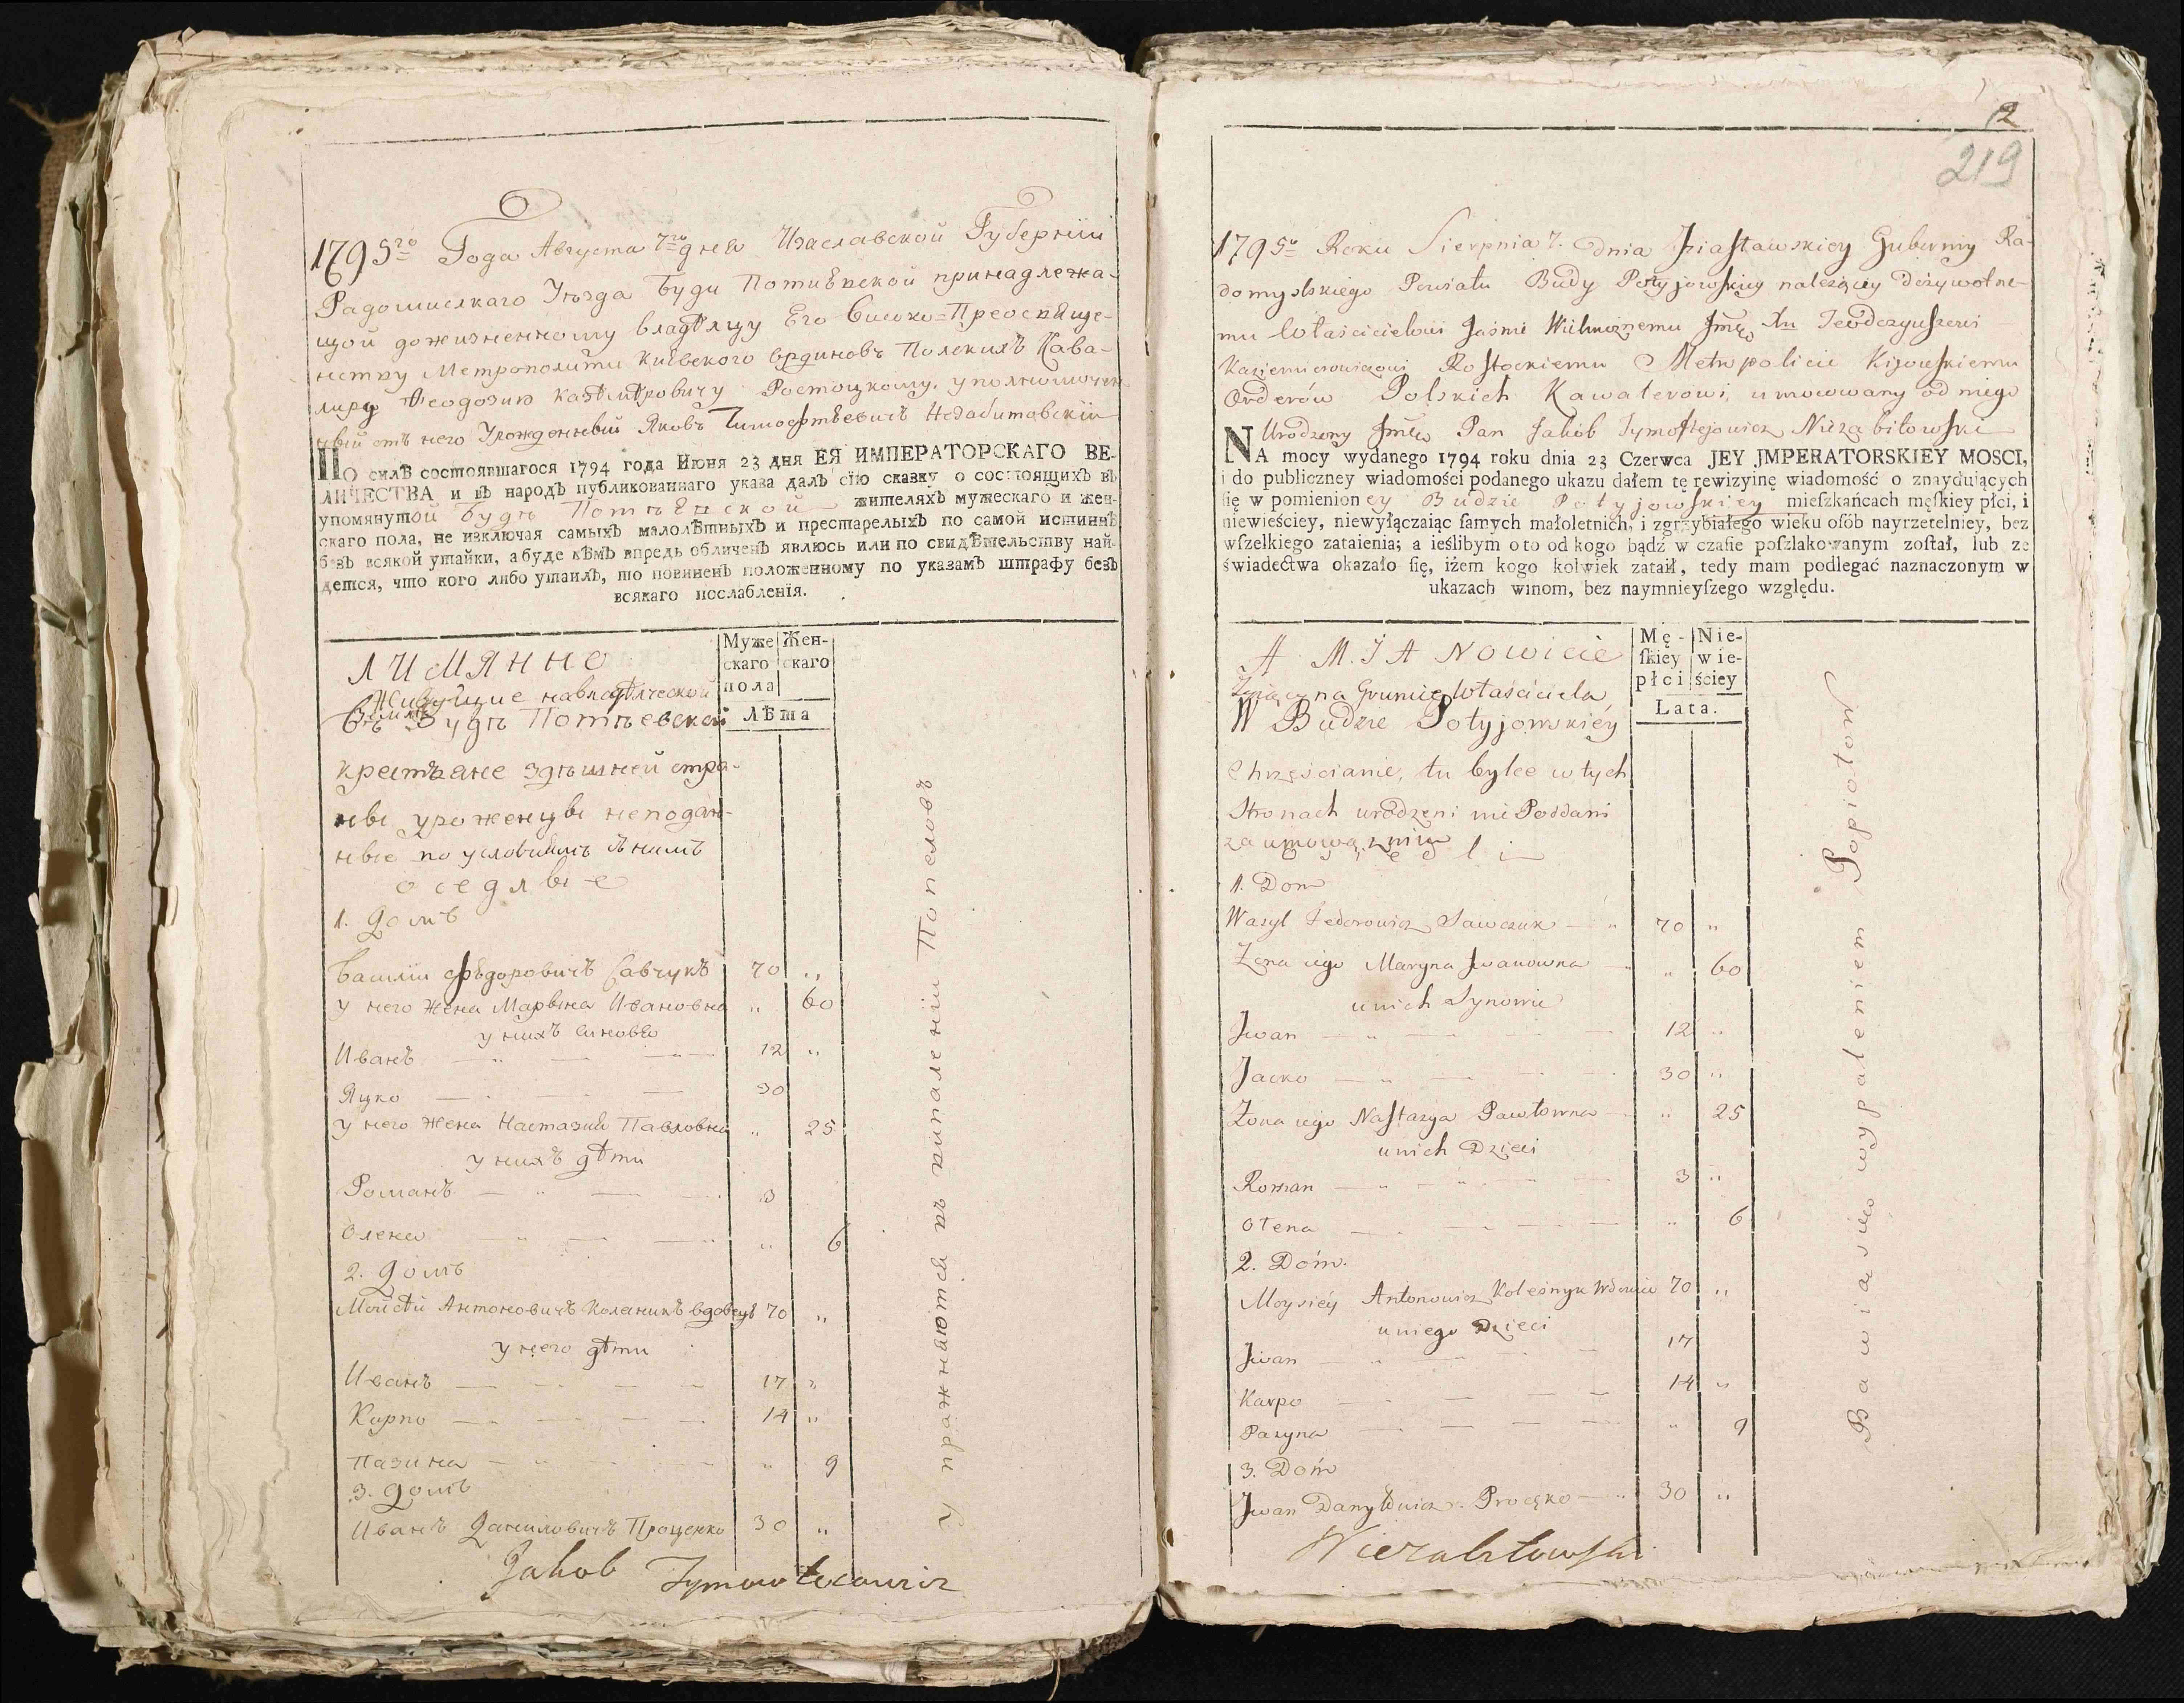 1795го Года Августа 7го дня Изаславской Губернїи
Радомислкаго Уѣзда Буди Потиѣвской принадлежа-
щой дожизненному владѣлцу Его Високо=Преосвяще-
нству Метрополиты Киевского ординовъ Полскихъ Кава-
лиру Феодозию Казимѣровичу Ростоцкому, уполномочен-
ный отъ него Урожденный Яковъ Тимофѣевичъ Незабитовскїи
ПО силѣ состоявшагося 1794 года Июня 23 дня ЕЯ ИМПЕРАТОРСКАГО ВЕ-
ЛИЧЕСТВА и въ народъ публикованнаго указа далъ сїю сказку о состоящихъ въ
упомянутой Будѣ Потѣевской жителяхъ мужескаго и жен-
скаго пола, не изключая самыхъ малолѣтныхъ и престарелыхъ по самой истиннѣ
безъ всякой утайки, а буде кѣмъ впредь обличенъ явлюсь или по свидѣтельству най-
дется, что кого либо утаилъ, то повиненъ положенному по указамъ штрафу безъ
всякаго послабленїя.
Муже- Жен-
скаго скаго
пола
Лѣта
А ИМЯННО
Живущие на владѣлческой
Землѣ
Въ Будѣ Потѣевской
крестьане здѣшней стра-
ны уроженцы неподан-
ные по условиямъ съ нимъ
оседлые
1. Домъ
Василїи Фѣдоровичъ Савчукъ 70 „
у него жена Марына Ивановна „ 60
у нихъ синовѣ
Иванъ 12 „
Яцко 30
у него жена Настазия Павловна „ 25
у нихъ дѣти
Романъ 3
Олена „ 6
2. Домъ
Мойсѣй Антоновичъ Колесникъ вдовецъ 70 „
у него дѣти
Иванъ 17 „
Карпо 14 „
Пазина „ 9
3. Домъ
Иванъ Даниловичъ Проценко 30 „
Упражнаются въ випаленїи Попеловъ
Jakob Tymoteowicz
12
219
1795o Roku Sierpnia 7. dnia Iziaſławskiey Guberniy Ra-
domyslskiego Powiatu Budy Potyjowſkiey należącey dożywotne-
mu Właścicielowi Jaśnie Wielmożnemu Jmci Xu Teodozyuſzowi
Kazimierowiczowi Roſtockiemu Metropolicie Kijowſkiemu
Orderów Polskich Kawalerowi, umocowany od niego
Urodzony Jmć Pan Jakób Tymofiejowicz Niezabitowſki
NA mocy wydanego 1794 roku dnia 23 Czerwca JEY JMPERATORSKIEY MOSCI,
i do publiczney wiadomości podanego ukazu dałem tę rewizyinę wiadomość o znayduiących
ſię w pomienioney Budzie Potyjowſkiey mieſzkańcach męſkiey płci, i
niewieściey, niewyłączaiąc ſamych małoletnich, i zgrzybiałego wieku oſób nayrzetelniey, bez
wſzelkiego zataienia; a ieślibym o to od kogo bądź w czaſie poſzlakowanym zoſtał, lub ze
świadectwa okazało ſię, iżem kogo kolwiek zataił, tedy mam podlegać naznaczonym w
ukazach winom, bez naymnieyſzego względu.
Mę- Nie-
ſkiey wie-
płci ściey
Lata.
A MIANowicie
Żyiący na Gruncie Właściciela
W Budzie Potyjowskiey
Chrześcianie, tu bylce w tych
Stronach urodzeni nie Poddani
za umową z nim
osiedli
1. Dom
Wasyl Fedorowicz Sawczuk 70 „
Żona iego Maryna Jwanowna „ 60
u nich Synowie
Jwan 12 „
Jacko 30 „
Żona iego Naſtazya Pawłowna „ 25
u nich Dzieci
Roman 3 „
Ołena „ 6
2. Dóm.
Moysiéy Antonowicz Koleśnyk Wdowiec 70 „
u niego Dzieci
Jwan 17
Karpo 14 „
Pazyna „ 9
3. Dóm
Jwan Danyłowicz Procęko 30 „
Bawią się wypaleniem Popiołow
Niezabitowſki